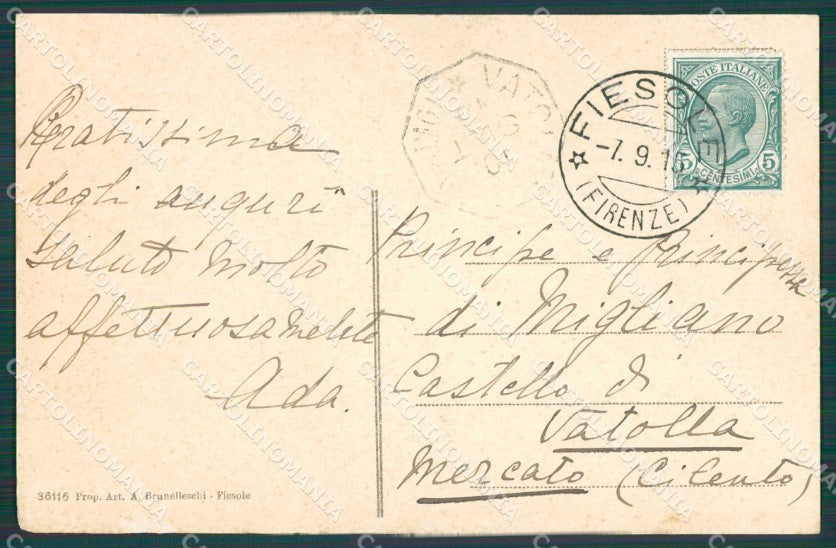 Gratissima
degli auguri
saluto molto
affettuosamente
Ada.
36116 Prop. Art. A. Brunelleschi - Fiesole
VATOL
FIESOLE
-7.9.15
(FIRENZE)
POSTE ITALIANE
5 5
CENTESIMI
Principe e Principessa
di Migliano
Castello di
Vatolla
Mercato (Cilento)
CARTOLINOMANIA